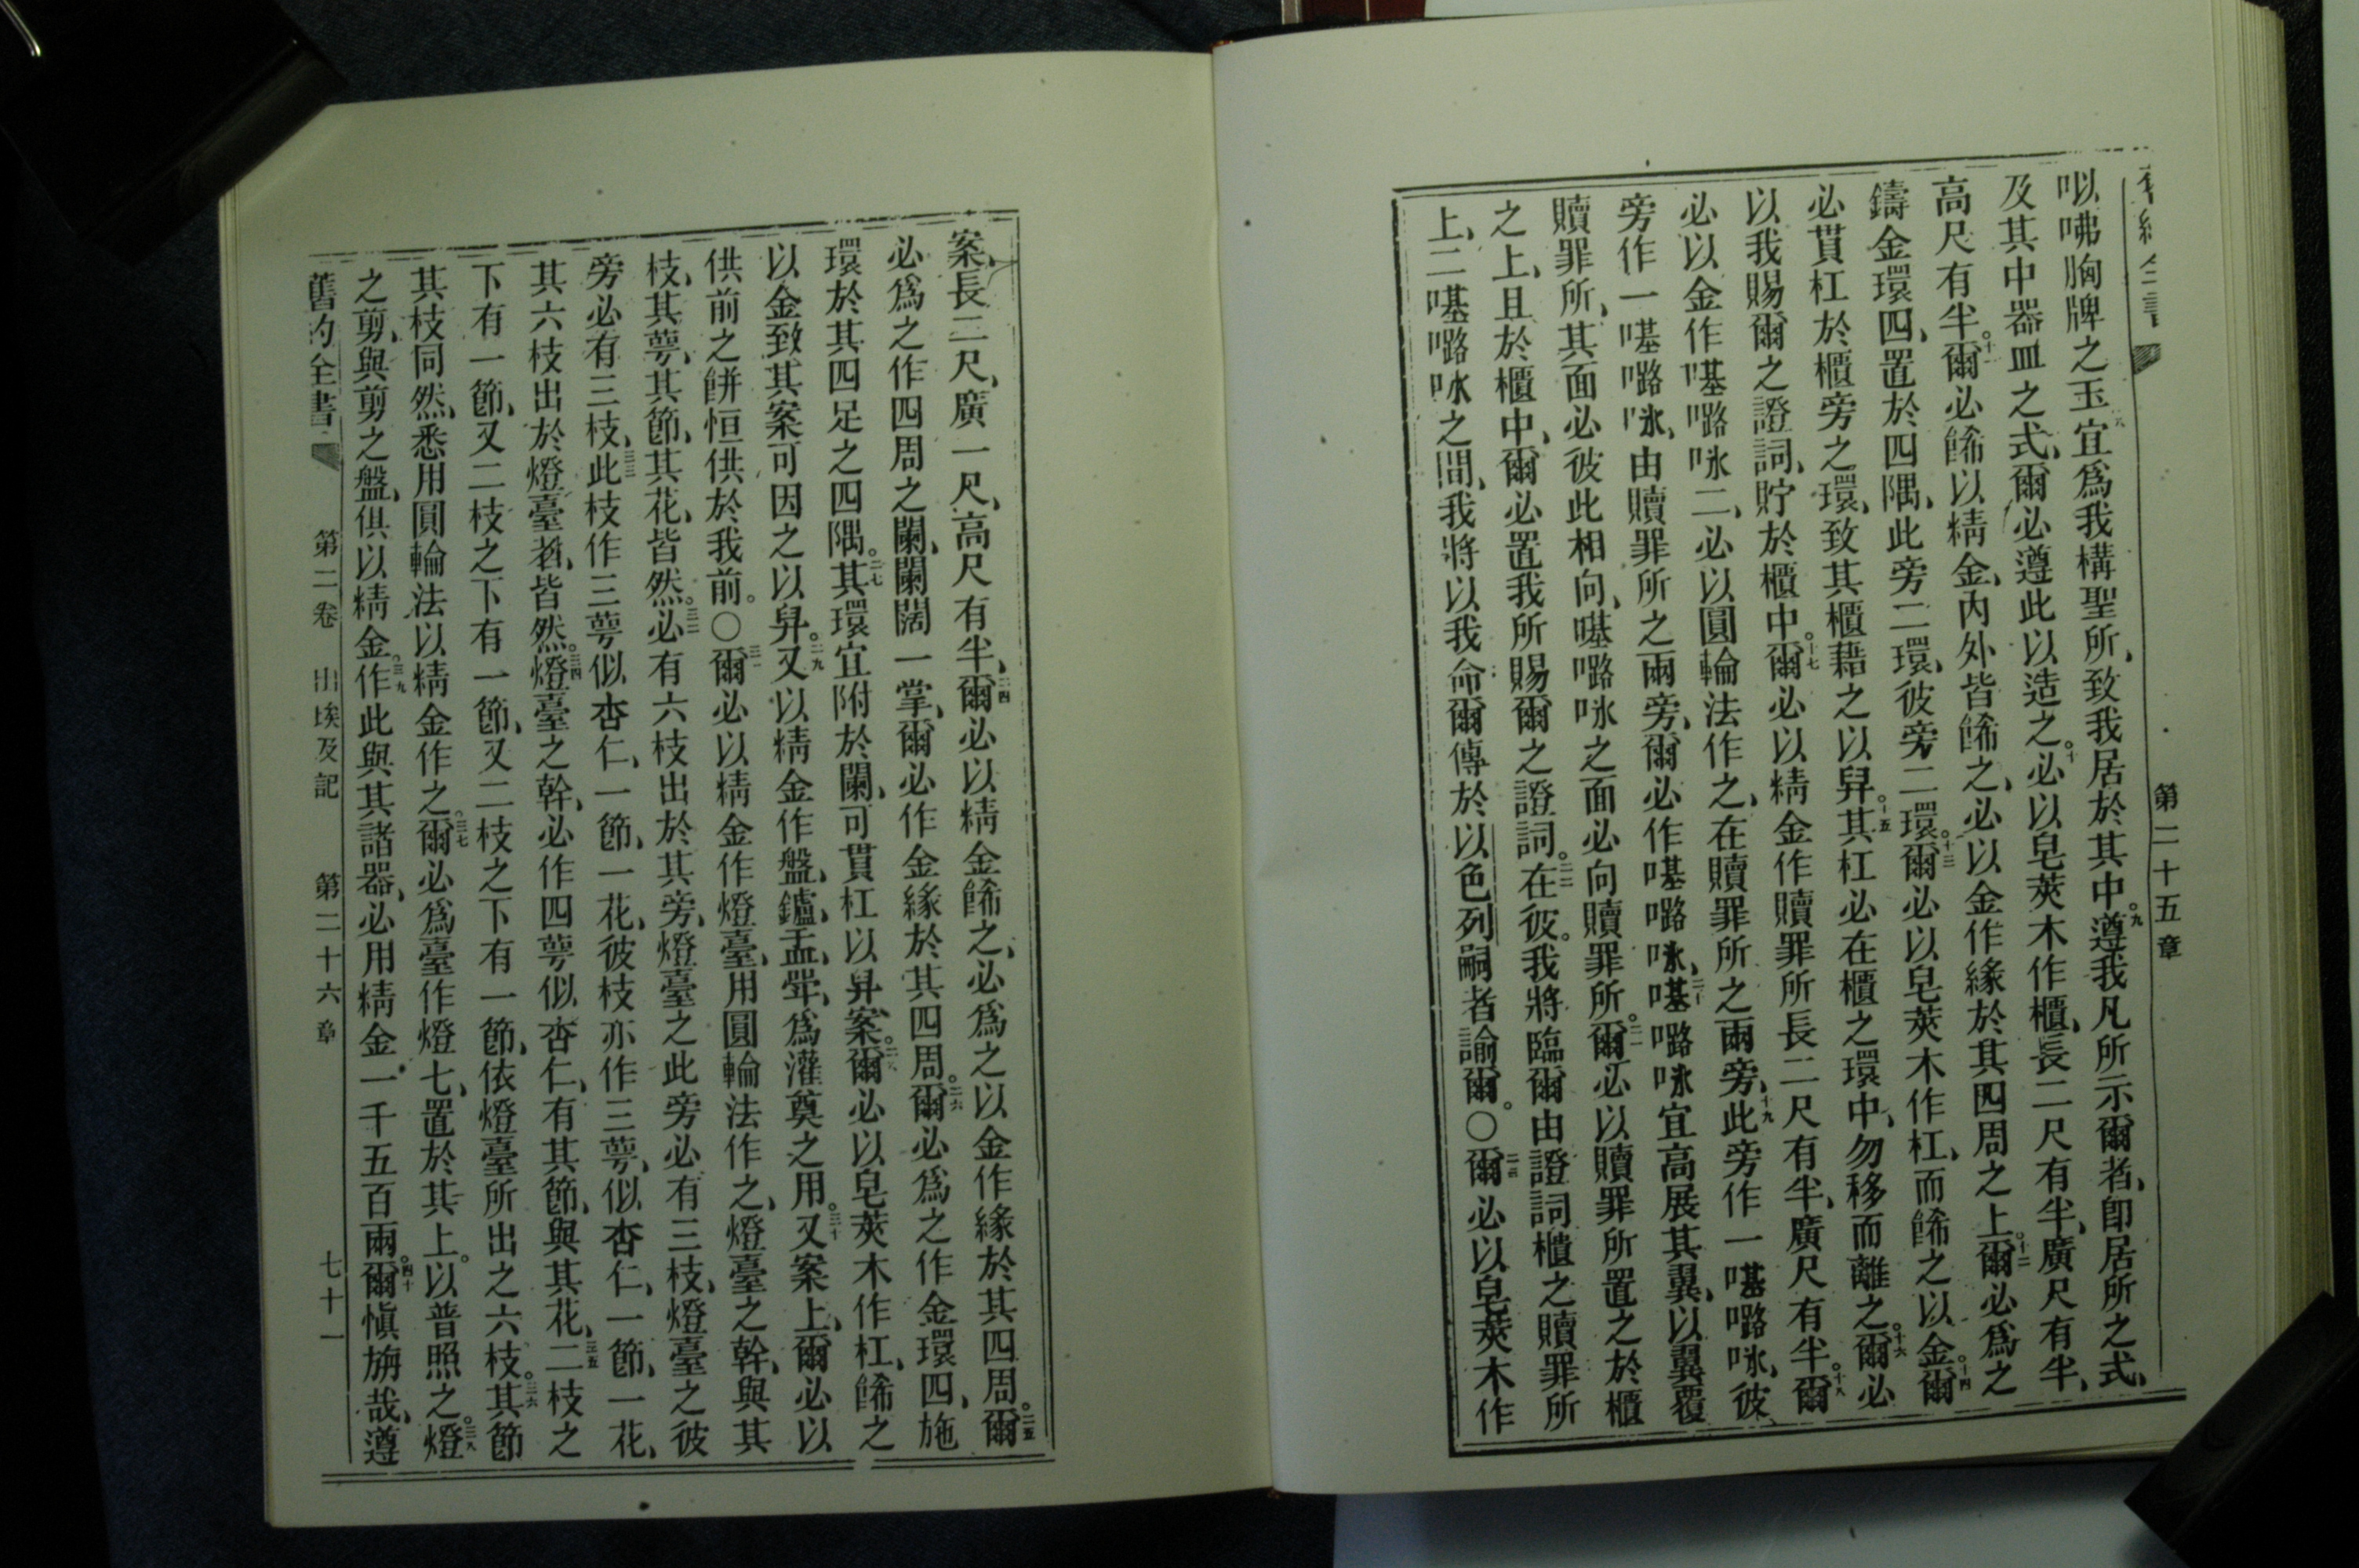 第二十五章
㕥咈胸牌之玉宜爲我構聖所、致我居於其中。九遵我凡所示爾者、卽居所之式、
及其中器皿之式、爾必遵此以造之。十必以皂莢木作櫃、長二尺有半、廣尺有半、
高尺有半。十一爾必餙以精金、內外皆餙之、必以金作緣於其四周之上。十二爾必爲之
鑄金環四、置於四隅、此旁二環、彼旁二環。十三爾必以皂莢木作杠、而餙之以金。十四爾
必貫杠於櫃旁之環、致其櫃藉之以舁。十五其杠必在櫃之環中、勿移而離之。十六爾必
以我賜爾之證詞、貯於櫃中。十七爾必以精金作贖罪所長二尺有半、廣尺有半。十八爾
必以金作㗫嚕咏二、必以圓輪法作之、在贖罪所之兩旁、十九此旁作一㗫嚕咏、彼
旁作一㗫嚕咏、由贖罪所之兩旁、爾必作㗫嚕咏、二十㗫嚕咏宜高展其翼、以翼覆
贖罪所、其面必彼此相向、㗫嚕咏之面必向贖罪所。二一爾必以贖罪所置之於櫃
之上、且於櫃中、爾必置我所賜爾之證詞。二二在彼。我將臨爾由證詞櫃之贖罪所
上、二㗫嚕咏之間、我將以我命爾傳於以色列嗣者諭爾。〇二三爾必以皂莢木作
案、長二尺、廣一尺、高尺有半、二四爾必以精金餙之、必爲之以金作緣於其四周。二五爾
必爲之作四周之闌、闌闊一掌、爾必作金緣於其四周。二六爾必爲之作金環四、施
環於其四足之四隅。二七其環宜附於闌、可貫杠以舁案。二八爾必以皂莢木作杠、餙之
以金致其案可因之以舁。二九又以精金作盤、鑪、盂、斝、爲灌奠之用。三十又案上、爾必以
供前之餅恒供於我前。〇三一爾必以精金作燈臺、用圓輪法作之、燈臺之幹、與其
枝、其蕚、其節、其花、皆然。三二必有六枝出於其旁、燈臺之此旁必有三枝、燈臺之彼
旁必有三枝、三三此枝作三蕚似杏仁、一節、一花、彼枝亦作三蕚、似杏仁、一節、一花、
其六枝出於燈臺者、皆然。三四燈臺之幹、必作四蕚似杏仁、有其節、與其花、三五二枝之
下有一節、又二枝之下有一節、又二枝之下有一節、依燈臺所出之六枝。三六其節
其枝同然、悉用圓輪法以精金作之。三七爾必爲臺作燈七、置於其上。以普照之。三八燈
之剪、與剪之盤、俱以精金。三九作此與其諸器、必用精金一千五百兩。四十爾愼旃哉、遵
舊約全書 第二卷 出埃及記 第二十六章 七十一